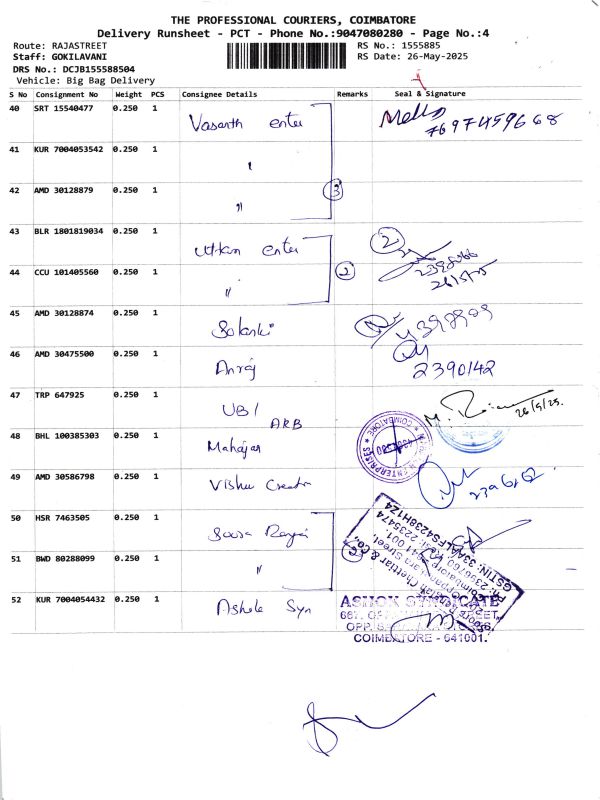 THE PROFESSIONAL COURIERS, COIMBATORE
Delivery Runsheet - PCT - Phone No.:9047080280 - Page No.:4
Route: RAJASTREET
RS No.: 1555885
Staff: GOKILAVANI
RS Date: 26-May-2025
DRS No.: DCJB155588504
Vehicle: Big Bag Delivery
S No Consignment No Weight PCS Consignee Details Remarks Seal & Signature
40 SRT 15540477 0.250 1 Vasanth enter
41 KUR 7004053542 0.250 1 "
42 AMD 30128879 0.250 1 " 3
43 BLR 1801819034 0.250 1 enter 2
44 CCU 101405560 0.250 1 " 2
26/5/25
45 AMD 30128874 0.250 1 Solanki
46 AMD 30475500 0.250 1 Anraj 2390142
47 TRP 647925 0.250 1 UBI 26/5/25.
ARB
48 BHL 100385303 0.250 1 Mahajan
49 AMD 30586798 0.250 1 Vishu
50 HSR 7463505 0.250 1
51 BWD 80288099 0.250 1 "
52 KUR 7004054432 0.250 1 Ashok Syn
ASHOK SYNDICATE
COIMBATORE - 641001.